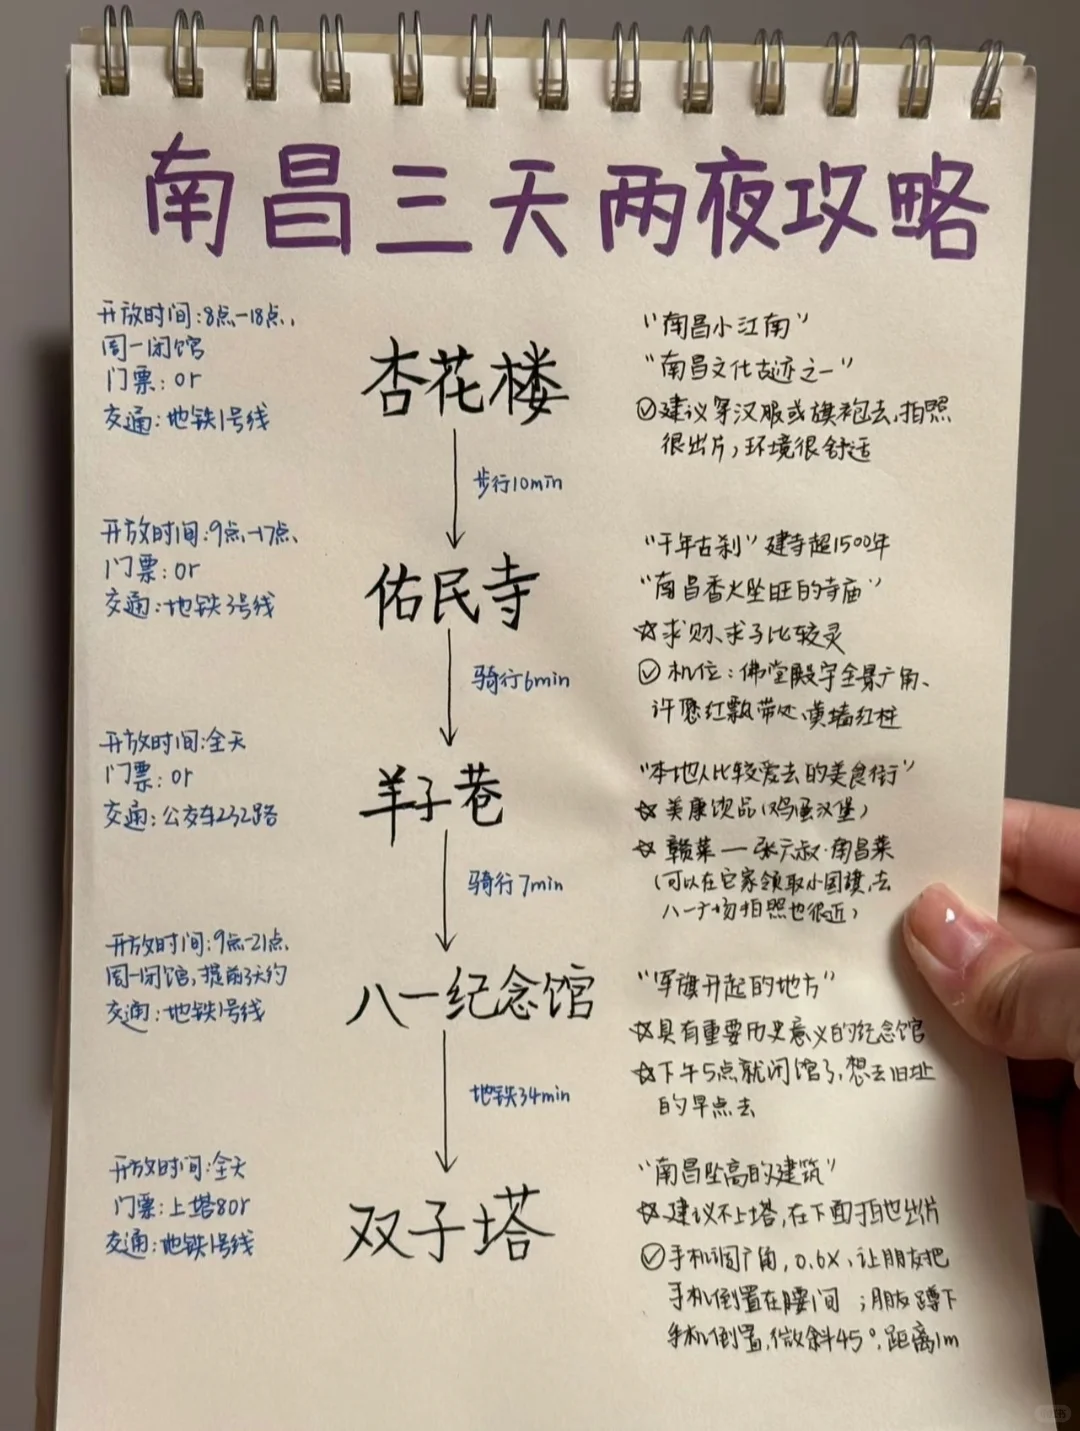 南昌三天两夜攻略
开放时间:8点-18点,
周一闭馆
门票:0r
交通:地铁1号线
杏花楼
"南昌小江南"
"南昌文化古迹之一"
建议穿汉服或旗袍去,拍照
很出片,环境很舒适
步行10min
开放时间:9点-17点、
门票:0r
交通:地铁3号线
佑民寺
"千年古刹" 建寺超1500年
"南昌香火坠旺的寺庙"
☆求财、求子比较灵
机位:佛堂殿宇全景广角、
许愿红飘带处、黄墙红柱
骑行6min
开放时间:全天
门票:0r
交通:公交车232路
羊子巷
"本地人比较爱去的美食街"
☆美康饮品(鸡蛋汉堡)
☆赣菜—张六叔·南昌菜
(可以在它家领取小国旗,去
八一广场拍照也很近)
骑行7min
开放时间:9点-21点、
周一闭馆,提前3天约
交通:地铁1号线
八一纪念馆
"军旗升起的地方"
☆具有重要历史意义的纪念馆
☆下午5点就闭馆了,想去旧址
的早点去
地铁34min
开放时间:全天
门票:上塔80r
交通:地铁1号线
双子塔
"南昌坠高的建筑"
☆建议不上塔,在下面拍也出片
手机调广角,0.6x,让朋友把
手机倒置在腰间 ;朋友蹲下
手机倒置,微斜45°,距离1m